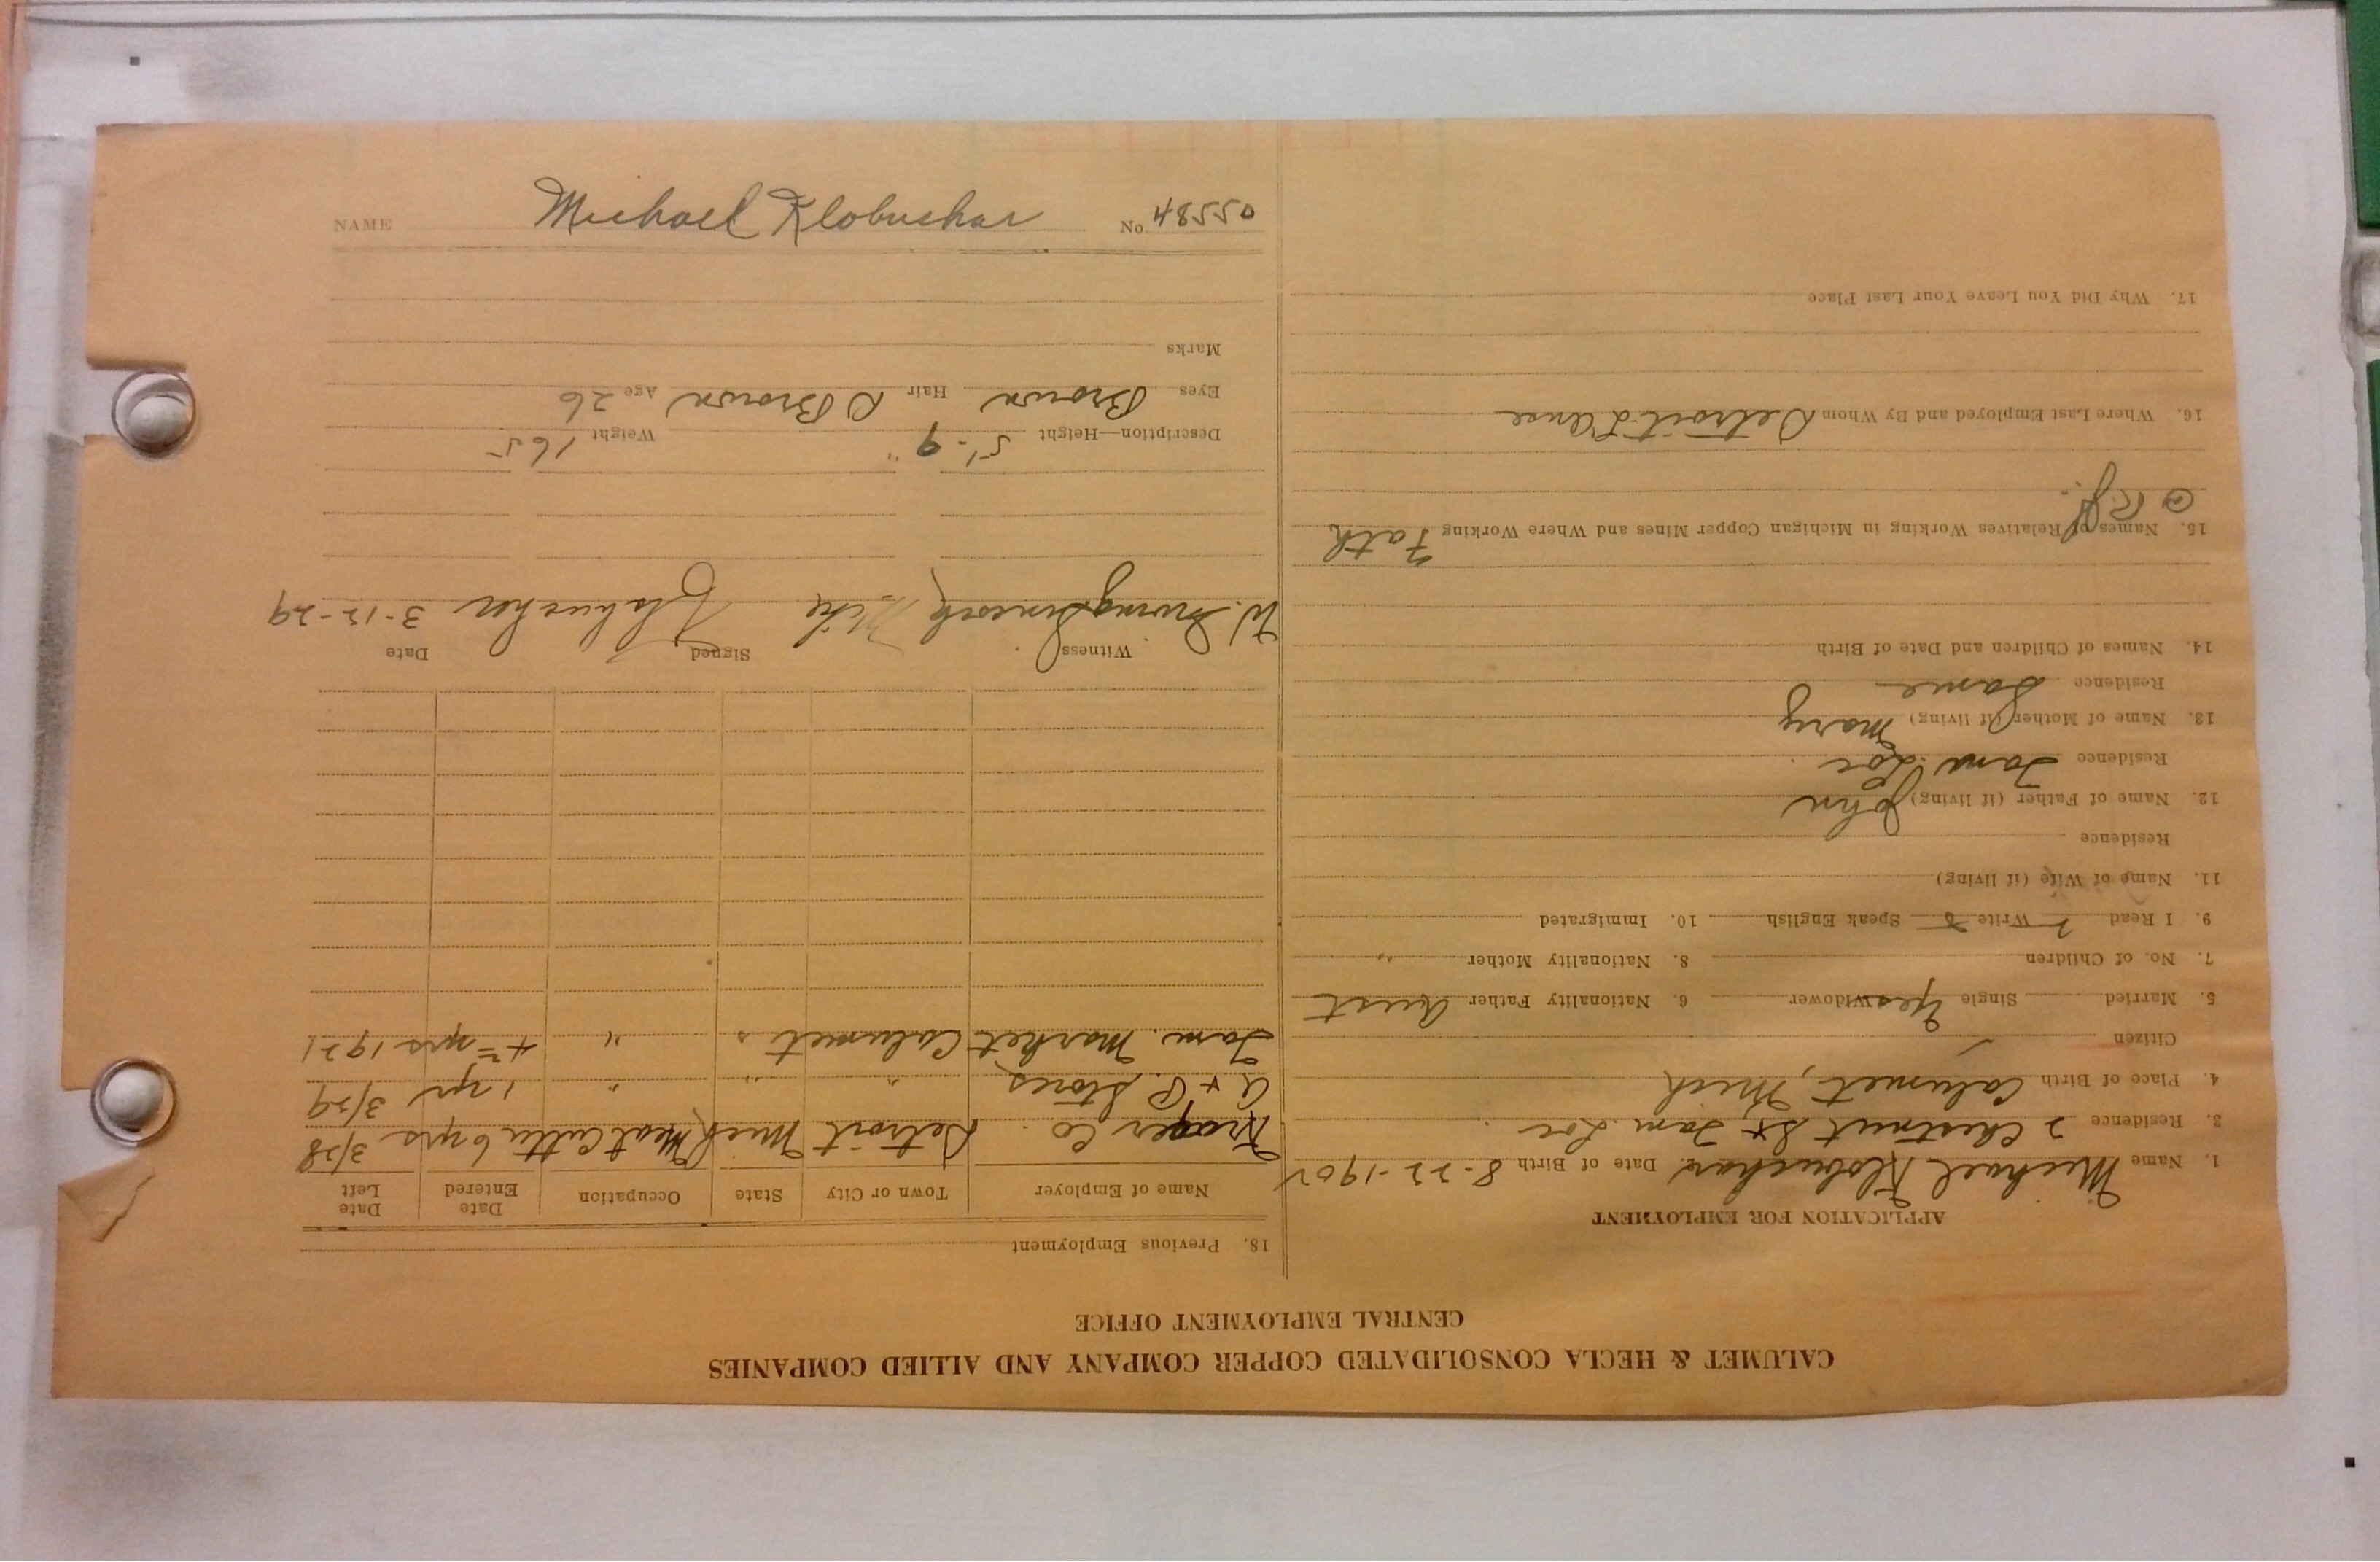 CALUMET & HECLA CONSOLIDATED COPPER COMPANY AND ALLIED COMPANIES
CENTRAL EMPLOYMENT OFFICE
APPLICATION FOR EMPLOYMENT
1. Name Michael Klobuchar Date of Birth 8-22-1902
3. Residence 2 Chestnut St Tam. Loc
4. Place of Birth Calumet, Mich
Citizen
5. Married Single Yes Widower 6. Nationality Father Aust
7. No. of Children 8. Nationality Mother "
9. I Read Write Speak English 10. Immigrated
11. Name of Wife (if living)
Residence
12. Name of Father (if living) John
Residence Tam. Loc.
13. Name of Mother (if living) Mary
Residence Same
14. Names of Children and Date of Birth
15. Names of Relatives Working in Michigan Copper Mines and Where Working Fath
@
16. Where Last Employed and By Whom Detroit
17. Why Did You Leave Your Last Place
18. Previous Employment
Name of Employer Town or City State Occupation Date Entered Date Left
Kroger Co. Detroit Mich Meat Cutter 6 yrs 3/28
A & P. Stores " " " 1 yr 3/29
Tam. Market Calumet " " yrs 1921
Witness Signed Date
W. Irving Mike Klobuchar 3-12-29
Description—Height 5'-9" Weight 165
Eyes Brown Hair D Brown Age 26
Marks
NAME Michael Klobuchar No. 48550